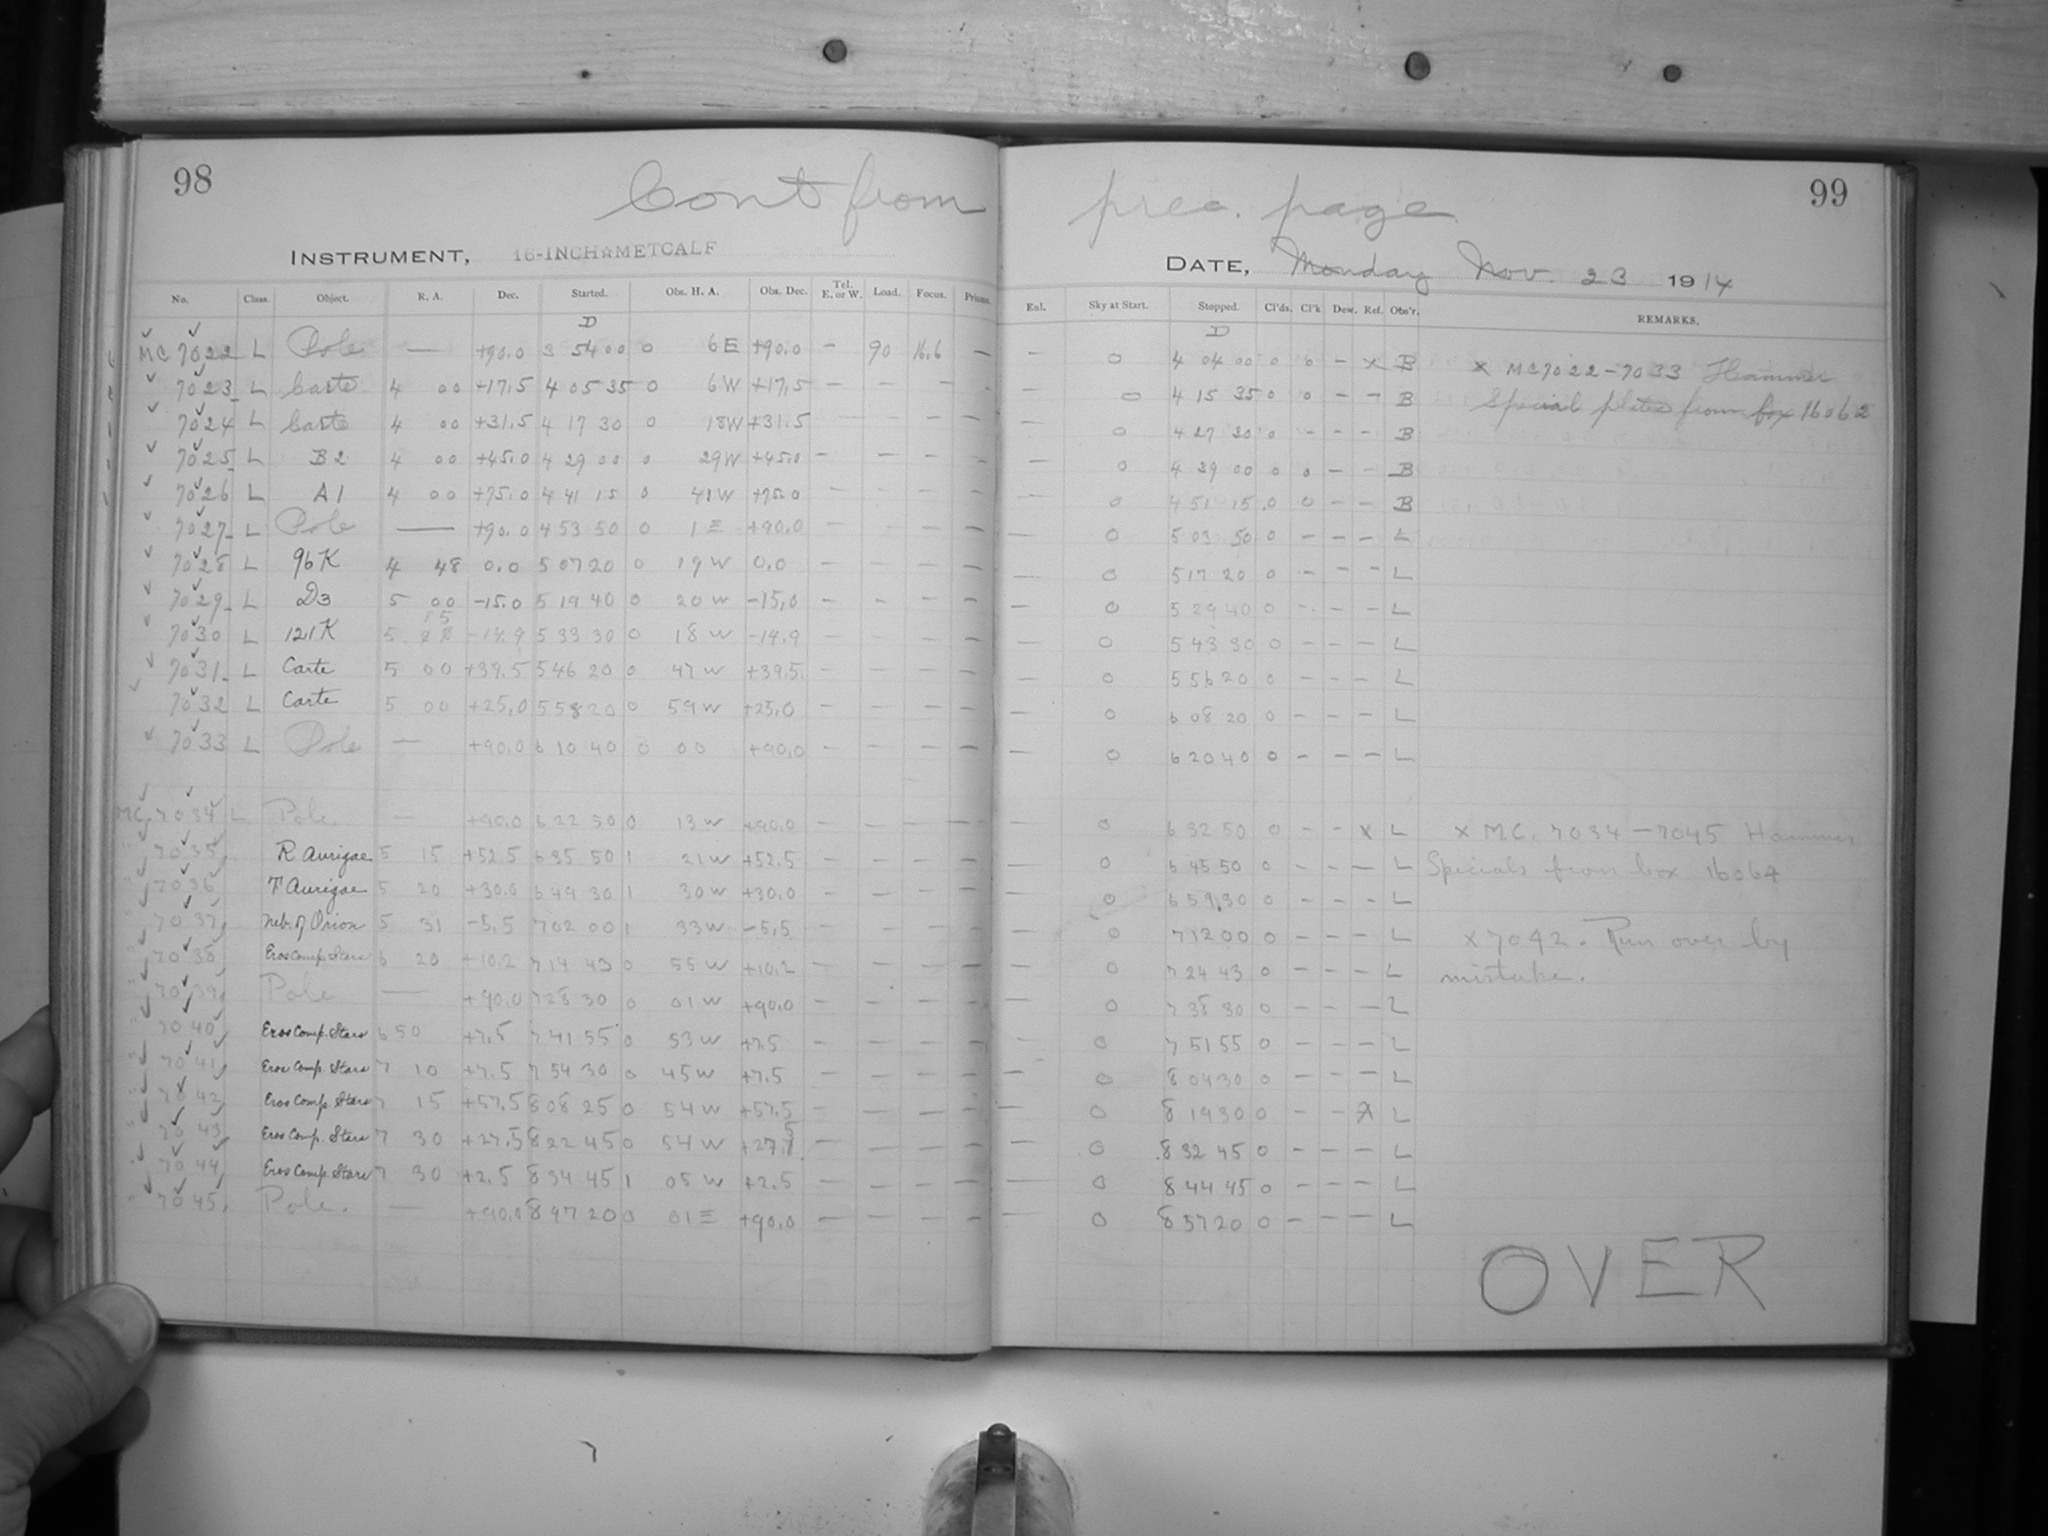 98
Cont from prec. page
99
INSTRUMENT, 16-INCH☆METCALF
DATE, Monday Nov. 23 1914
No. Class. Object. R. A. Dec. Started. Obs. H. A. Obs. Dec. Tel. E. or W. Load. Focus. Prisms. Eul. Sky at Start. Stopped. Cl'ds. Cl'k Dew. Ref. Obs'r. REMARKS.
D D
MC 7022 L Pole — +90.0 3 54 00 0 6 E +90.0 - 90 16.6 — — 0 4 04 00 0 0 - x B x MC7022-7033 Hammer
7023 L Carte 4 00 +17.5 4 05 35 0 6 W +17.5 — — — - — 0 4 15 35 0 0 - - B Special plates from box 16062
7024 L Carte 4 00 +31.5 4 17 30 0 18 W +31.5 — — — — — 0 4 27 30 0 - - - B
7025 L B2 4 00 +45.0 4 29 00 0 29 W +45.0 — — — — — 0 4 39 00 0 0 - - B
7026 L A1 4 00 +75.0 4 41 15 0 41 W +75.0 — — — — — 0 4 51 15 0 0 - - B
7027 L Pole — +90.0 4 53 50 0 1 E +90.0 — — — — — 0 5 03 50 0 - - - L
7028 L 96K 4 48 0.0 5 07 20 0 19 W 0.0 — — — — — 0 5 17 20 0 - - - L
7029 L D3 5 00 -15.0 5 19 40 0 20 W -15.0 — — — — — 0 5 29 40 0 - - - L
15
7030 L 121K 5 -14.9 5 33 30 0 18 W -14.9 — — — — — 0 5 43 30 0 - - - L
7031 L Carte 5 00 +39.5 5 46 20 0 47 W +39.5 — — — — — 0 5 56 20 0 - - - L
7032 L Carte 5 00 +25.0 5 58 20 0 59 W +25.0 — — — — — 0 6 08 20 0 - - - L
7033 L Pole — +90.0 6 10 40 0 00 +90.0 — — — — — 0 6 20 40 0 - - - L
MC 7034 L Pole. — +90.0 6 22 50 0 13 W +90.0 — — — — — 0 6 32 50 0 - - x L x MC. 7034-7045 Hammer
" 7035 R Aurigae 5 15 +52.5 6 35 50 1 21 W +52.5 — — — — — 0 6 45 50 0 - - - L Specials from box 16064
" 7036 T Aurigae 5 20 +30.0 6 49 30 1 30 W +30.0 — — — — — 0 6 59 30 0 - - - L
" 7037 Neb. of Orion 5 31 -5.5 7 02 00 1 33 W -5.5 — — — — — 0 7 12 00 0 - - - L x 7042. Run over by
" 7038 Eros Comp. Stars 6 20 +10.2 7 14 43 0 55 W +10.2 — — — — — 0 7 24 43 0 - - - L mistake.
" 7039 Pole — +90.0 7 28 30 0 01 W +90.0 — — — — — 0 7 38 30 0 - - - L
" 7040 Eros Comp. Stars 6 50 +7.5 7 41 55 0 53 W +7.5 — — — — — 0 7 51 55 0 - - - L
" 7041 Eros Comp. Stars 7 10 +7.5 7 54 30 0 45 W +7.5 — — — — — 0 8 04 30 0 - - - L
" 7042 Eros Comp. Stars 7 15 +57.5 8 08 25 0 54 W +57.5 — — — — — 0 8 19 30 0 - - x L
" 7043 Eros Comp. Stars 7 30 +27.5 8 22 45 0 54 W +27.5 — — — — — 0 8 32 45 0 - - - L
" 7044 Eros Comp. Stars 7 30 +2.5 8 34 45 1 05 W +2.5 — — — — — 0 8 44 45 0 - - - L
" 7045 Pole. — +90.0 8 47 20 0 01 E +90.0 — — — — — 0 8 57 20 0 - - - L
OVER